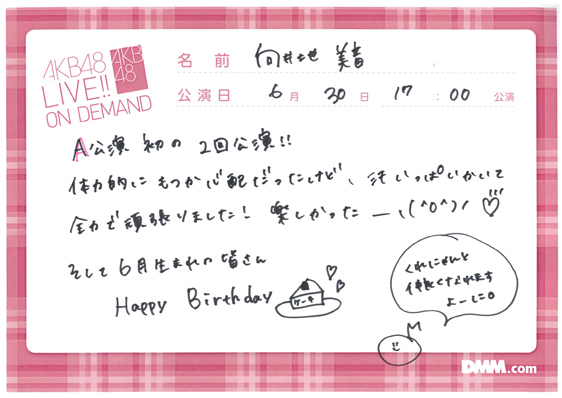 AKB48
LIVE!!
ON DEMAND
AKB
48
名前 向井地 美音
公演日 6月30日 17:00 公演
A公演 初の 2回公演!!
体力的にもつか心配だったけど、汗いっぱいかいて
全力で頑張りました! 楽しかったー\(^o^)/♡
そして6月生まれの皆さん
Happy Birthday
ケーキ
くれにゃんと
仲良くなれてます
よーに。
DMM.com